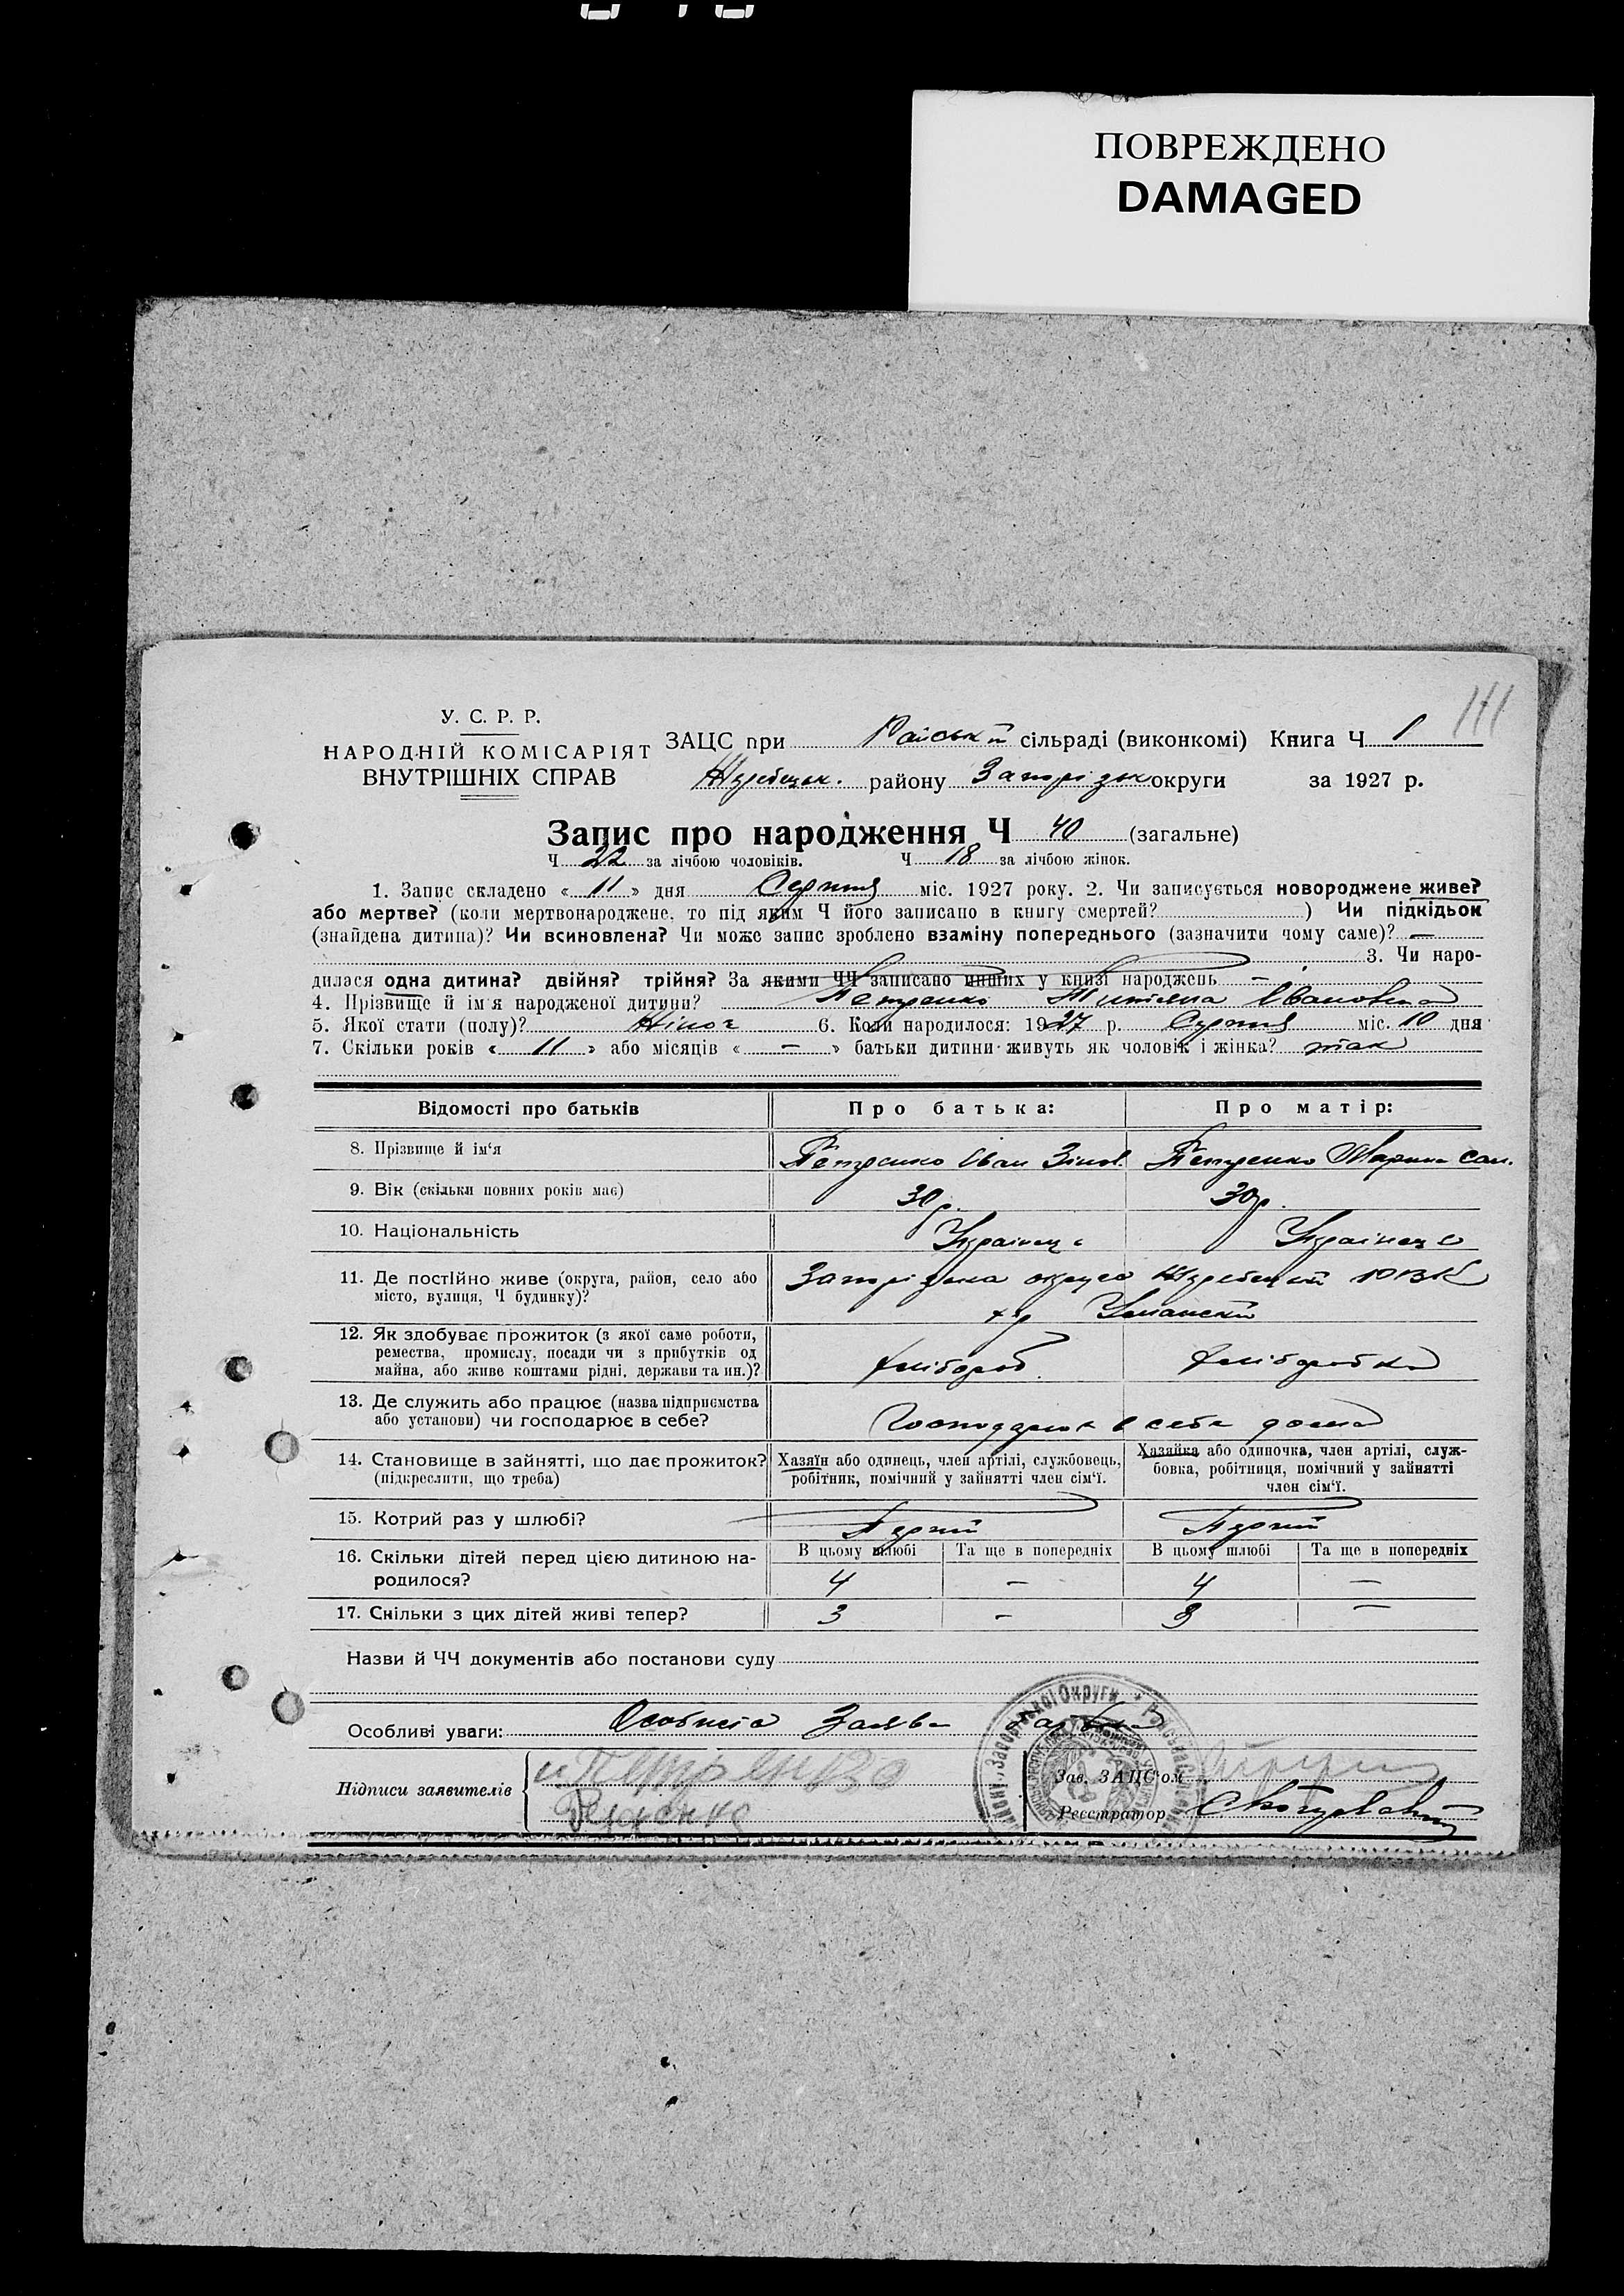 ПОВРЕЖДЕНО
DAMAGED
111
У. С. Р. Р.
НАРОДНІЙ КОМІСАРІЯТ
ВНУТРІШНІХ СПРАВ
ЗАЦС при Райській сільраді (виконкомі) Книга Ч 1
Жеребецьк. району Запорізьк округи за 1927 р.
Запис про народження Ч 40 (загальне)
Ч 22 за лічбою чоловіків. Ч 18 за лічбою жінок.
1. Запис складено « 11 » дня Серпня міс. 1927 року. 2. Чи записується новороджене живе?
або мертве? (коли мертвонароджене, то під яким Ч його записано в книгу смертей? ) Чи підкідьок
(знайдена дитина)? Чи всиновлена? Чи може запис зроблено взаміну попереднього (зазначити чому саме)? —
3. Чи наро-
дилася одна дитина? двійня? трійня? За якими ЧЧ записано инших у книзі народжень —
4. Прізвище й ім'я народженої дитини? Петренко Титяна Івановна
5. Якої стати (полу)? Жіноч 6. Коли народилося: 1927 р. Серпня міс. 10 дня
7. Скільки років « 11 » або місяців « — » батьки дитини живуть як чоловік і жінка? так
Відомості про батьків Про батька: Про матір:
8. Прізвище й ім'я Петренко Іван Зінов. Петренко Марина Сам.
9. Вік (скільки повних років має) 30 р. 30 р.
10. Національність Українец Українец
11. Де постійно живе (округа, район, село або
місто, вулиця, Ч будинку)?
Запорізька округа Жеребецкій РВК
х-р Уманский
12. Як здобуває прожиток (з якої саме роботи,
ремества, промислу, посади чи з прибутків од
майна, або живе коштами рідні, держави та ин.)?
хлібороб хлібаробка
13. Де служить або працює (назва підприємства
або установи) чи господарює в себе?
Господарює в себе дома
14. Становище в зайнятті, що дає прожиток?
(підкреслити, що треба)
Хазяїн або одинець, член артілі, службовець,
робітник, помічний у зайнятті член сім'ї.
Хазяйка або одиночка, член артілі, служ-
бовка, робітниця, помічний у зайнятті
член сім'ї.
15. Котрий раз у шлюбі? Перший Перший
16. Скільки дітей перед цією дитиною на-
родилося?
В цьому шлюбі Та ще в попередніх В цьому шлюбі Та ще в попередніх
4 — 4 —
17. Скільки з цих дітей живі тепер? 3 — 3 —
Назви й ЧЧ документів або постанови суду
Особливі уваги: Особиста Заява батька
Підписи заявителів и Петренко
Зав. ЗАЦС'ом
Реєстратор